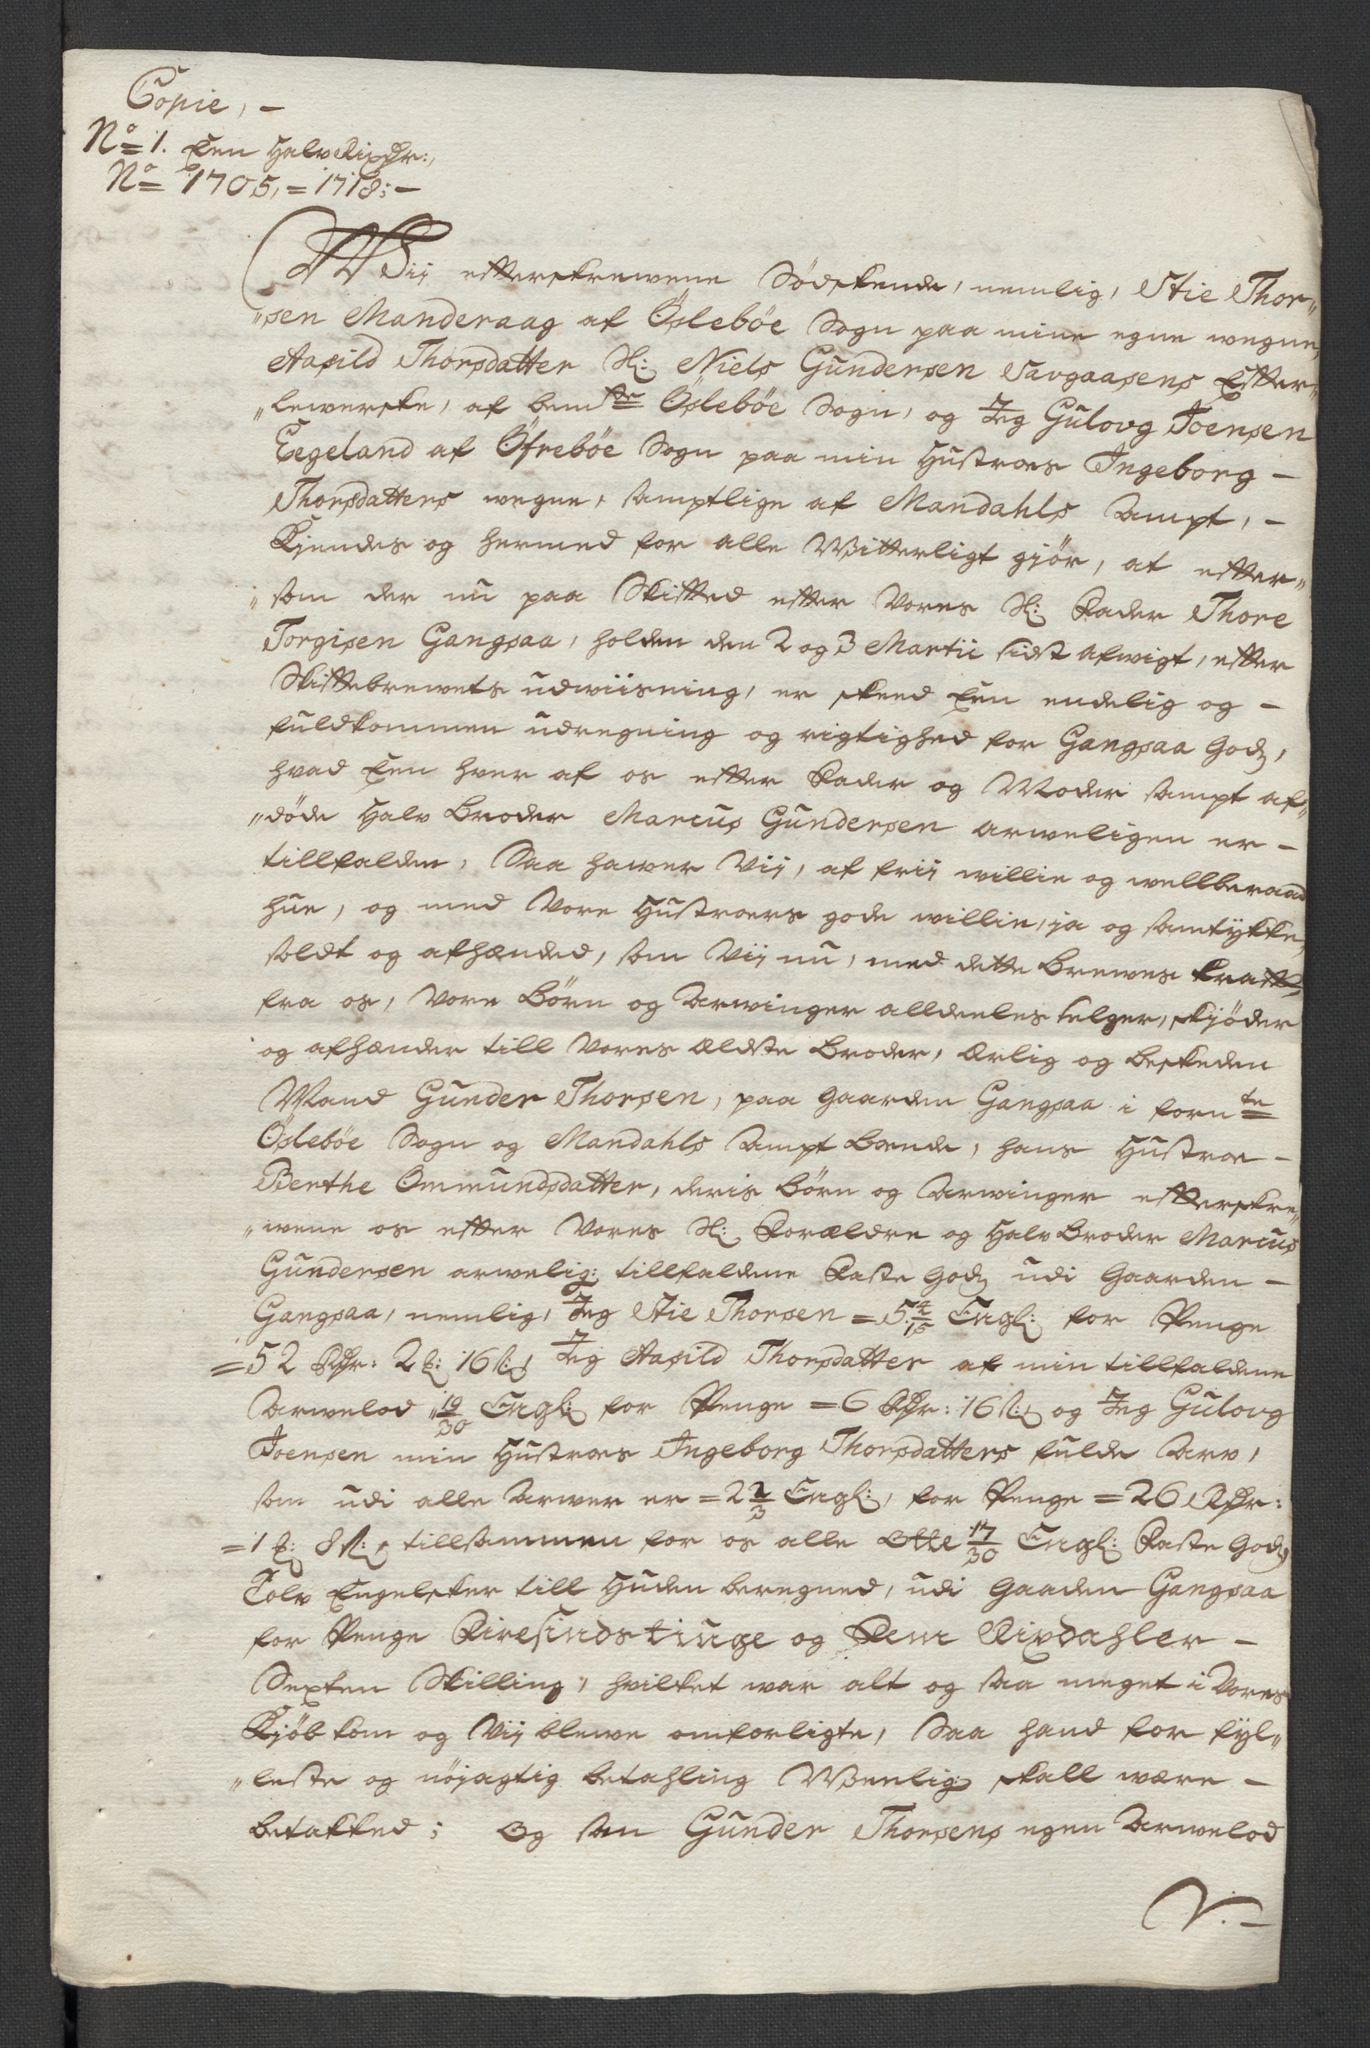 Copie, -
No= 1. Een Halv Rixdr:,
No= 1705, = 1718; -
Wii efterskrewene Södskende, nemlig, Stie Thor-
"sen Manderaag af Öslebøe Sogn paa mine egne wegne,
Aasild Thorsdatter Sl: Niels Gundersen Savgaasens Efter-
"lewerske, af bemte Öslebøe Sogn, og Jeg Gulovg Joensen
Eegeland af Öfrebøe Sogn paa min Hustroes Ingeborg -
Thorsdatters wegne, samptlige af Mandahls Ampt, -
Kiendes og hermed for alle Witterligt gjör, at efter-
"som der nu paa Skifted efter Vores Sl: Fader Thore
Torgisen Gangsaa, holden den 2 og 3 Martii sidst afwigt, efter
Skiftebrewets udwiisning, er skeed Een endelig og -
fuldkommen udregning og rigtighed for Gangsaa Godz,
hvad Een hver af os efter Fader og Moder sampt af-
"döde Halv Broder Marcus Gundersen arweligen er -
tillfalden, Saa hawer Vii, af frii willie og wellberaad
hue, og med Vore Hustroers gode willie, ja og samtykke,
soldt og afhænded, som Vii nu, med dette Brewes Kraft,
fra os, Vore Börn og Arwinger alldeeles selger, skjöder
og afhænder till Vores ældste Broder, Ærlig og beskeden
Mand Gunder Thorsen, paa Gaarden Gangsaa i fornte
Öslebøe Sogn og Mandahls Ampt boende, hans Hustroe -
Berthe Ommundsdatter, deris Börn og Arwinger efterskre-
"wene os efter Vores Sl: Forældre og Halv Broder Marcus
Gundersen arwelig: tillfaldene Faste Godz udi Gaarden -
Gangsaa, nemlig, Jeg Stie Thorsen = 5 4/15 Engl: for Penge
= 52 Rdr: 2 ß: 16 ß:, Jeg Aasild Thorsdatter af min tillfaldene
Arwelod " 19/30 Engl: for Penge = 6 Rdr: 16 ß:, og Jeg Gulovg
Joensen min Hustroes Ingeborg Thorsdatters fulde Arv,
som udi alle Arwer er = 2 2/3 Engl:, for Penge = 26 Rdr:
= 1 ß: 8 ß:, tillsammen for os alle Otte 17/30 Engl: Faste Godz
Tolv Engelsker till Huden beregned, udi Gaaden Gangsaa
for Penge Firesindstiuge og Fem Rixdahler -
Sexten Skilling, hvilket war alt og saa meget i Vores
Kjöb kom og Vii blewe omforligte, Saa hand for fyl-
"leste og nöjagtig betahling Wenlig skall være -
betakked; Og som Gunder Thorsens egen Arwelod
V: -